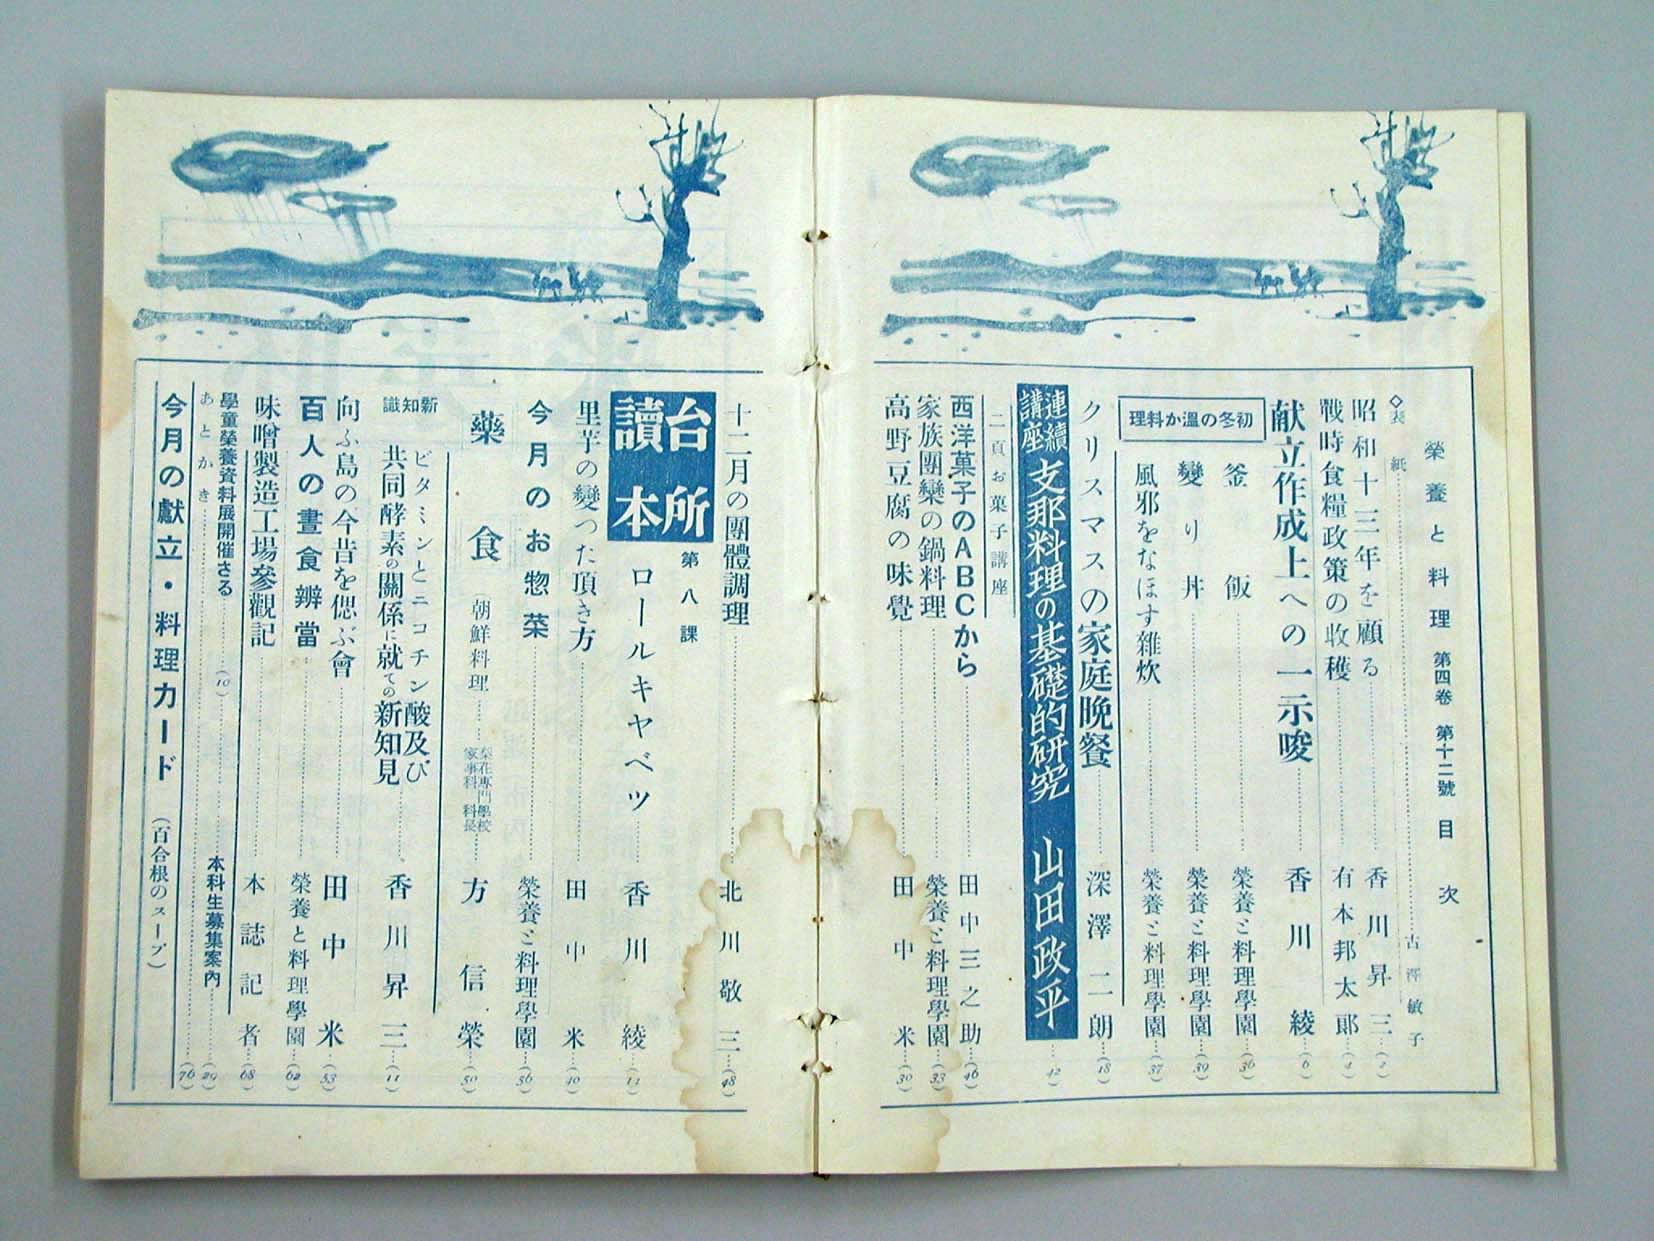 榮養と料理 第四卷 第十二號 目次
◇表紙……古澤敏子
昭和十三年を顧る……香川昇三…(2)
戰時食糧政策の收穫……有本邦太郎…(4)
献立作成上への一示唆……香川綾…(6)
初冬の溫か料理
釜飯……榮養と料理學園…(36)
變り丼……榮養と料理學園…(39)
風邪をなほす雜炊……榮養と料理學園…(37)
クリスマスの家庭晩餐……深澤二朗…(18)
連續講座 支那料理の基礎的研究 山田政平…(42)
二頁お菓子講座
西洋菓子のABCから……田中三之助…(46)
家族團欒の鍋料理……榮養と料理學園…(33)
高野豆腐の味覺……田中米…(30)
十二月の團體調理……北川敬三…(48)
台所讀本 第八課 ロールキヤベツ……香川綾…(14)
里芋の變つた頂き方……田中米…(40)
今月のお惣菜……榮養と料理學園…(56)
藥食(朝鮮料理)……梨花專門學校家事科科長…方信榮…(50)
新知識
ビタミンとニコチン酸及び
共同酵素の關係に就ての新知見……香川昇三…(11)
向ふ島の今昔を偲ぶ會……田中米…(53)
百人の晝食辨當……榮養と料理學園…(62)
味噌製造工場參觀記……本誌記者…(68)
學童榮養資料展開催さる……(10) 本科生募集案內……(29)
あとがき……(76)
今月の獻立・料理カード (百合根のスープ)